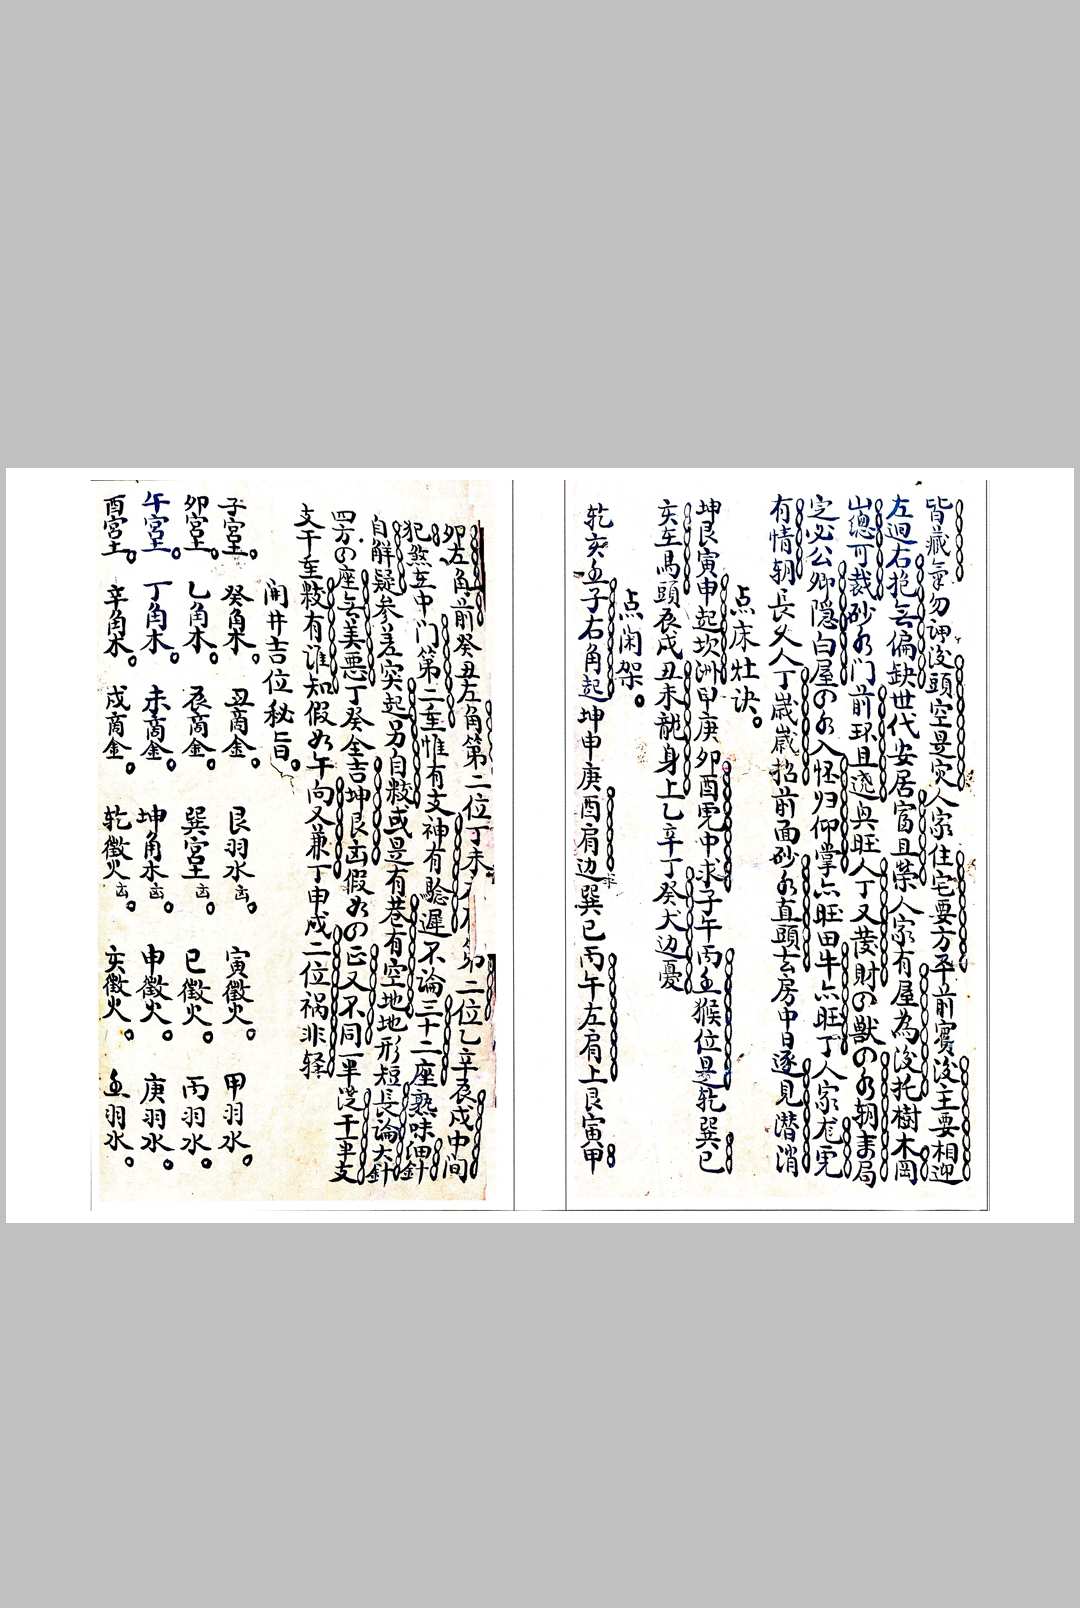 皆藏氣勿訷没頭空是灾人家住宅要方平前賓後主要相迎
左迴右抱無偏缺世代安居富且榮人家有屋為後托樹木岡
山總可裁砂水门前环且遶與旺人丁又發財四獸四水朝
定必公卿隐白屋四水入怀归仰掌亦旺田牛亦旺丁人家
有情朝長父人丁歲歲招前面砂水直頭去房中日逐見潛消
点床灶诀
坤艮寅申起坎洲甲庚卯酉兎中求子午丙壬猴位是乾巽已
亥在馬頭辰戌丑未龍身上乙辛丁癸犬边憂
点闲架
乾亥壬子右角起坤申庚酉肩边巽已丙午左肩上艮寅甲
卯左角前癸丑左角第二位丁未 第二位乙辛辰戌中间
犯煞在中门第二重惟有支神有驗遲不論三十二座熟味
自解疑参差突起另自数或是有巷有空地地形短長論大針
四方四座無美悪丁癸全吉坤艮凶假如四正又不同一半従干半支
支干重数有谁知假如午向又兼丁申成二位禍非轻
開井吉位秘旨
子宮土 癸角木 丑商金 艮羽水凶 寅徵火 甲羽水
卯宮土 乙角木 辰商金 巽宮土凶 巳徵火 丙羽水
午宮土 丁角木 未商金 坤角木凶 申徵火 庚羽水
酉宮土 辛角木 戌商金 乾徵火凶 亥徵火 壬羽水